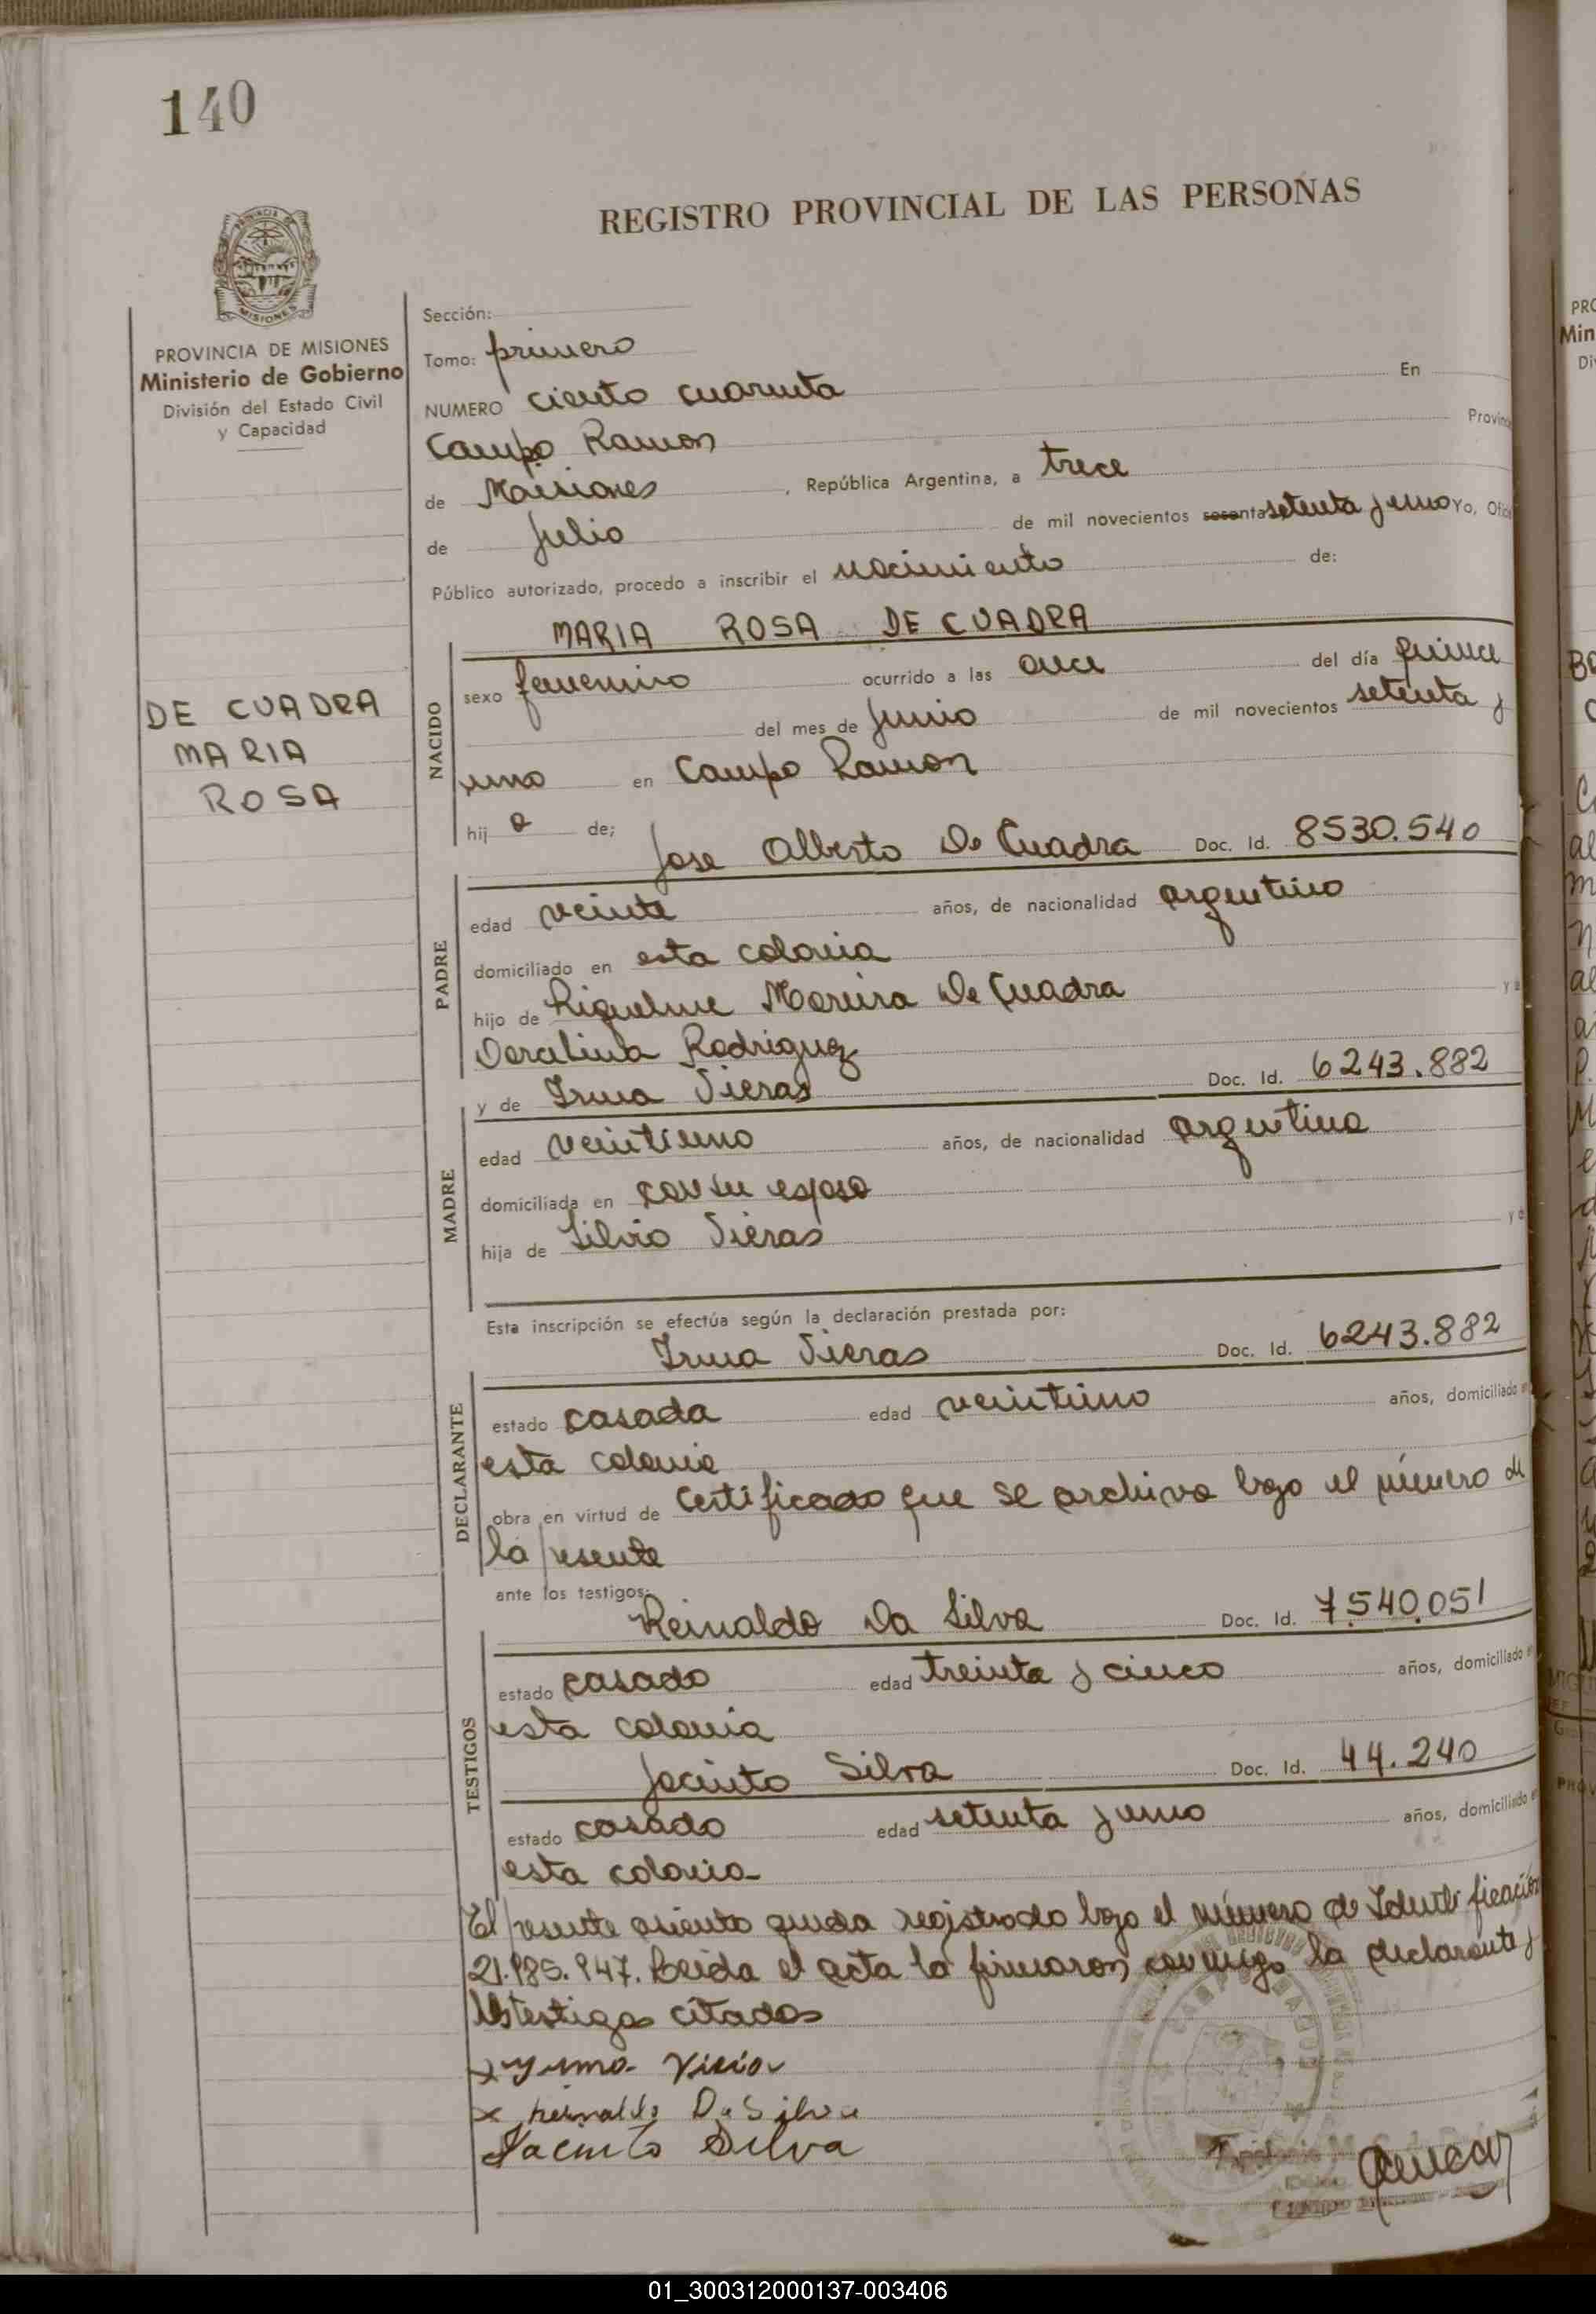 140
REGISTRO PROVINCIAL DE LAS PERSONAS
MISIONES
PROVINCIA DE MISIONES
Ministerio de Gobierno
División del Estado Civil
y Capacidad
DE CUADRA
MARIA
ROSA
Sección:
Tomo: primero
NUMERO ciento cuarenta En
Campo Ramon Provinc
de Misiones , República Argentina, a trece
de Julio de mil novecientos sesenta setenta y uno Yo, Ofic
Público autorizado, procedo a inscribir el nacimiento de:
MARIA ROSA DE CUADRA
NACIDO
sexo femenino ocurrido a las once del día quince
del mes de Junio de mil novecientos setenta y
uno en Campo Ramon
hij a de;
Jose Alberto De Cuadra Doc. Id. 8530.540
PADRE
edad veinte años, de nacionalidad argentino
domiciliado en esta colonia
hijo de Riquelme Moreira De Cuadra y a
Doralina Rodriguez
y de Irma Vieras Doc. Id. 6243.882
MADRE
edad veintiuno años, de nacionalidad argentina
domiciliada en con su esposo
hija de Silvio Vieras y d
Esta inscripción se efectúa según la declaración prestada por:
Irma Vieras Doc. Id. 6243.882
DECLARANTE
estado casada edad veintiuno años, domiciliado e
esta colonia
obra en virtud de Certificado que se archiva bajo el número de
la presente
ante los testigos:
Reinaldo Da Silva Doc. Id. 7.540.051
TESTIGOS
estado casado edad treinta y cinco años, domiciliado e
esta colonia
Jacinto Silva Doc. Id. 44.240
estado casado edad setenta y uno años, domiciliado e
esta colonia
El presente asiento queda registrado bajo el número de Identificación
21.985.947. Leida el acta la firmaron conmigo la declarante y
los testigos citados
x Yrma
x Reinaldo Da Silva
Jacinto Silva
01_300312000137-003406